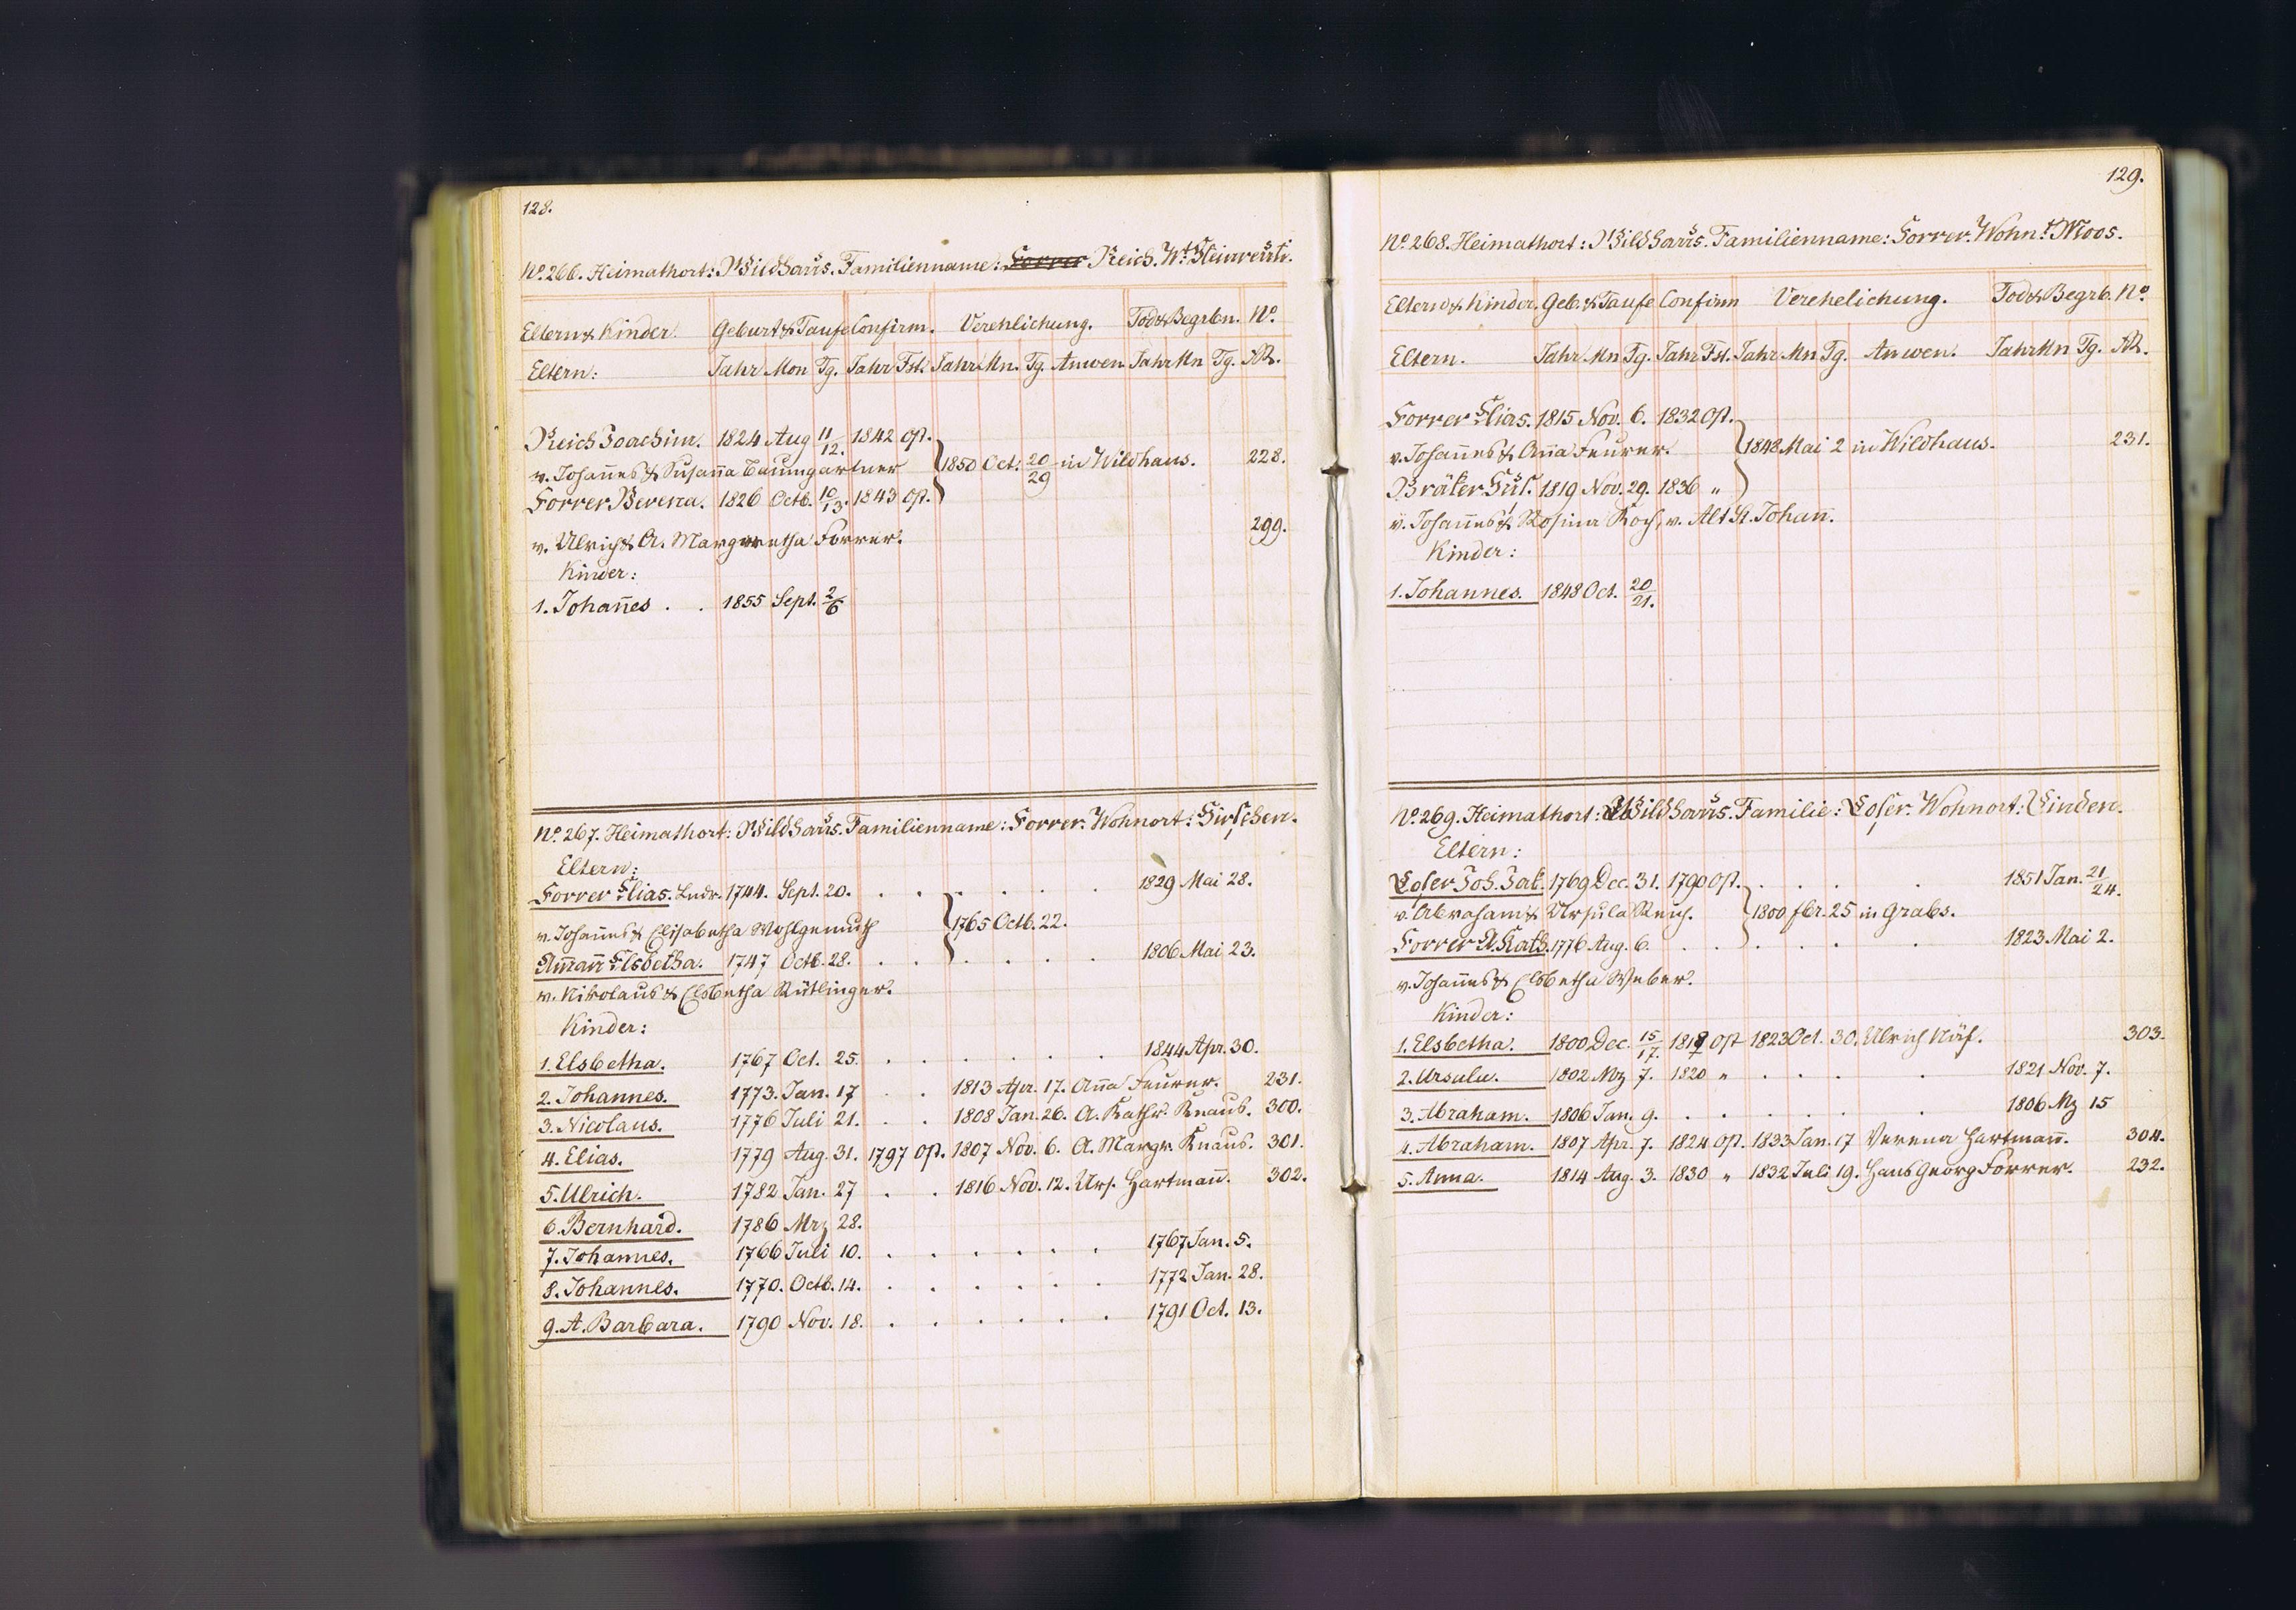 128.
No. 266. Heimathort: Wildhaus. Familienname: Forrer Reich. Wt. Steinreuti.
Eltern & Kinder. Geburt & Taufe Confirm. Verehlichung. Tod & Begrbn. No.
Eltern: Jahr Mon Tg. Jahr Fst. Jahr Mn. Tg. Anwen. Jahr Mn Tg. AR.
Reich Joachim. 1824 Aug 11/12. 1842 Ost.
v. Johañes & Susaña Baumgartner 1850 Oct. 20/29 in Wildhaus. 228.
Forrer Verena. 1826 Octb. 10/13. 1843 Ost.
v. Ulrich & A. Margaretha Forrer. 299.
Kinder:
1. Johañes . . 1855 Sept. 2/6
No. 267. Heimathort: Wildhaus. Familienname: Forrer. Wohnort: Hirschen.
Eltern:
Forrer Elias. Lndr. 1744. Sept. 20. . . . . . . 1829 Mai 28.
v. Johañes & Elisabetha Wohlgemuth 1765 Octb. 22.
Am̄añ Elsbetha. 1747 Octb. 28. . . . . . . 1806 Mai 23.
v. Nikolaus & Elsbetha Rütlinger.
Kinder:
1. Elsbetha. 1767 Oct. 25. . . . . . . 1844 Apr. 30.
2. Johannes. 1773. Jan. 17 . . 1813 Apr. 17. Aña Feurer. 231.
3. Nicolaus. 1776 Juli 21. . . 1808 Jan. 26. A. Kathr. Knaus. 300.
4. Elias. 1779 Aug. 31. 1797 Ost. 1807 Nov. 6. A. Margr. Knaus. 301.
5. Ulrich. 1782 Jan. 27 . . 1816 Nov. 12. Urs. Hartmañ. 302.
6. Bernhard. 1786 Mrz 28.
7. Johannes. 1766 Juli 10. . . . . . . 1767 Jan. 5.
8. Johannes. 1770. Octb. 14. . . . . . . 1772 Jan. 28.
9. A. Barbara. 1790 Nov. 18. . . . . . . 1791 Oct. 13.
129.
No. 268. Heimathort: Wildhaus. Familienname: Forrer. Wohnt. Moos.
Eltern & Kinder. Geb. & Taufe Confirm Verehelichung. Tod & Begrb. No.
Eltern. Jahr Mn Tg. Jahr Fst. Jahr Mn Tg. Anwen. Jahr Mn Tg. AR.
Forrer Elias. 1815 Nov. 6. 1832 Ost.
v. Johañes & Aña Feurer. 1848 Mai 2 in Wildhaus. 231.
Bräker Sus. 1819 Nov. 29. 1836 "
v. Johañes & Rosina Koch, v. Alt St. Johañ.
Kinder:
1. Johannes. 1848 Oct. 20/21.
No. 269. Heimathort: Wildhaus. Familie: Loser. Wohnort: Linden.
Eltern:
Loser Joh. Jak. 1769 Dec. 31. 1790 Ost. . . . . 1851 Jan. 21/24.
v. Abraham & Ursula Reich. 1800 fbr. 25 in Grabs.
Forrer A. Kath. 1776 Aug. 6. . . . . . . 1823 Mai 2.
v. Johañes & Elsbetha Weber.
Kinder:
1. Elsbetha. 1800 Dec. 15/17. 1817 Ost 1823 Oct. 30. Ulrich Näf. 303.
2. Ursula. 1802 Mz 7. 1820 " . . . . 1821 Nov. 7.
3. Abraham. 1806 Jan. 9. . . . . . . 1806 Mz 15
4. Abraham. 1807 Apr. 7. 1824 Ost. 1833 Jan. 17 Verena Hartmañ. 304.
5. Anna. 1814 Aug. 3. 1830 " 1832 Juli 19. Hans Georg Forrer. 232.